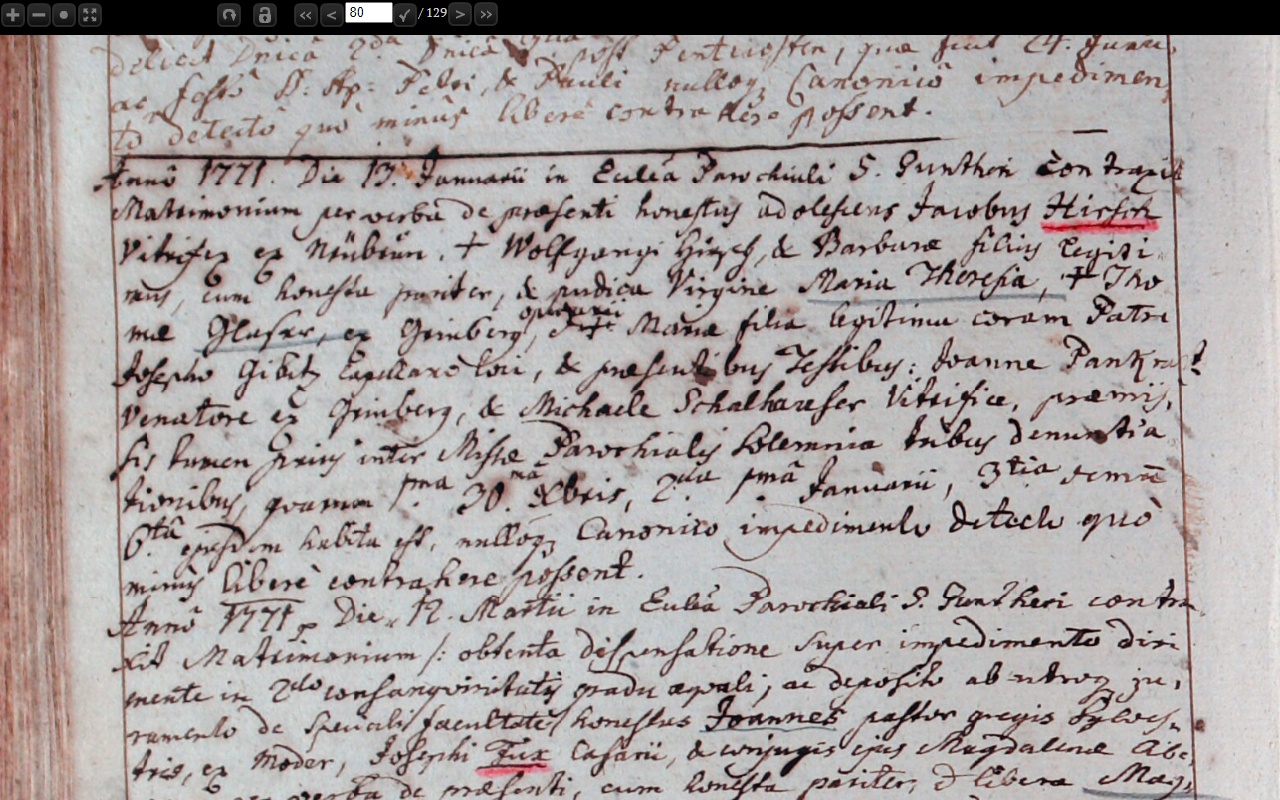 80 / 129
delicet Dnicâ 2da Dnicâ post Pentecosten, quae fuit 24. Junii,
ac Festô SS: Ap: Petri, & Pauli nulloq Canonicô impedimen,
to detecto quô minûs liberè contrahere possent.
Annô 1771. Die 13. Januarii in Ecclâ Parochiali S. Guntheri Contraxit
Matrimonium per verba de praesenti honestus adolescens Jacobus Hirsch
Vitrifex ex Neübrün. + Wolfgangi Hirsch, & Barbarae filius legiti-
mus, cum honesta pariter, & pudica Virgine Maria Theresia, + Tho
mae Glaser, ex Grinberg, operarii Mariae filia legitima coram Patre
Josepho Gibitz Capellano loci, & praesentibus Testibus: Joanne Pankratz
Venatore ex Grinberg, & Michaele Schalhauser Vitrifice, praemis,
sis tamen prius inter Missae Parochialis Solemnia tribus denuntia
tionibus, quarum pma 30mâ Xbris, 2da pmâ Januarii, 3tia demum
6tâ ejusdem habita est, nulloq Canonico impedimento detecto quô
minus liberè contrahere possent.
Annô 1771 Die 17. Martii in Ecclâ Parochiali S. Guntheri contra
xit Matrimonium /: obtenta dispensatione super impedimento diri
mente in 2do consanguinitatis gradu aequali; ac deposito ab utroq ju,
ramento de speciali facultate/ honestus Joannes pastor gregis Sylves,
tris, ex Moder, Josephi Fux Casarii, & conjugis ejus Magdalenae
per verba de praesenti, cum honesta pariter, & libera Mag,